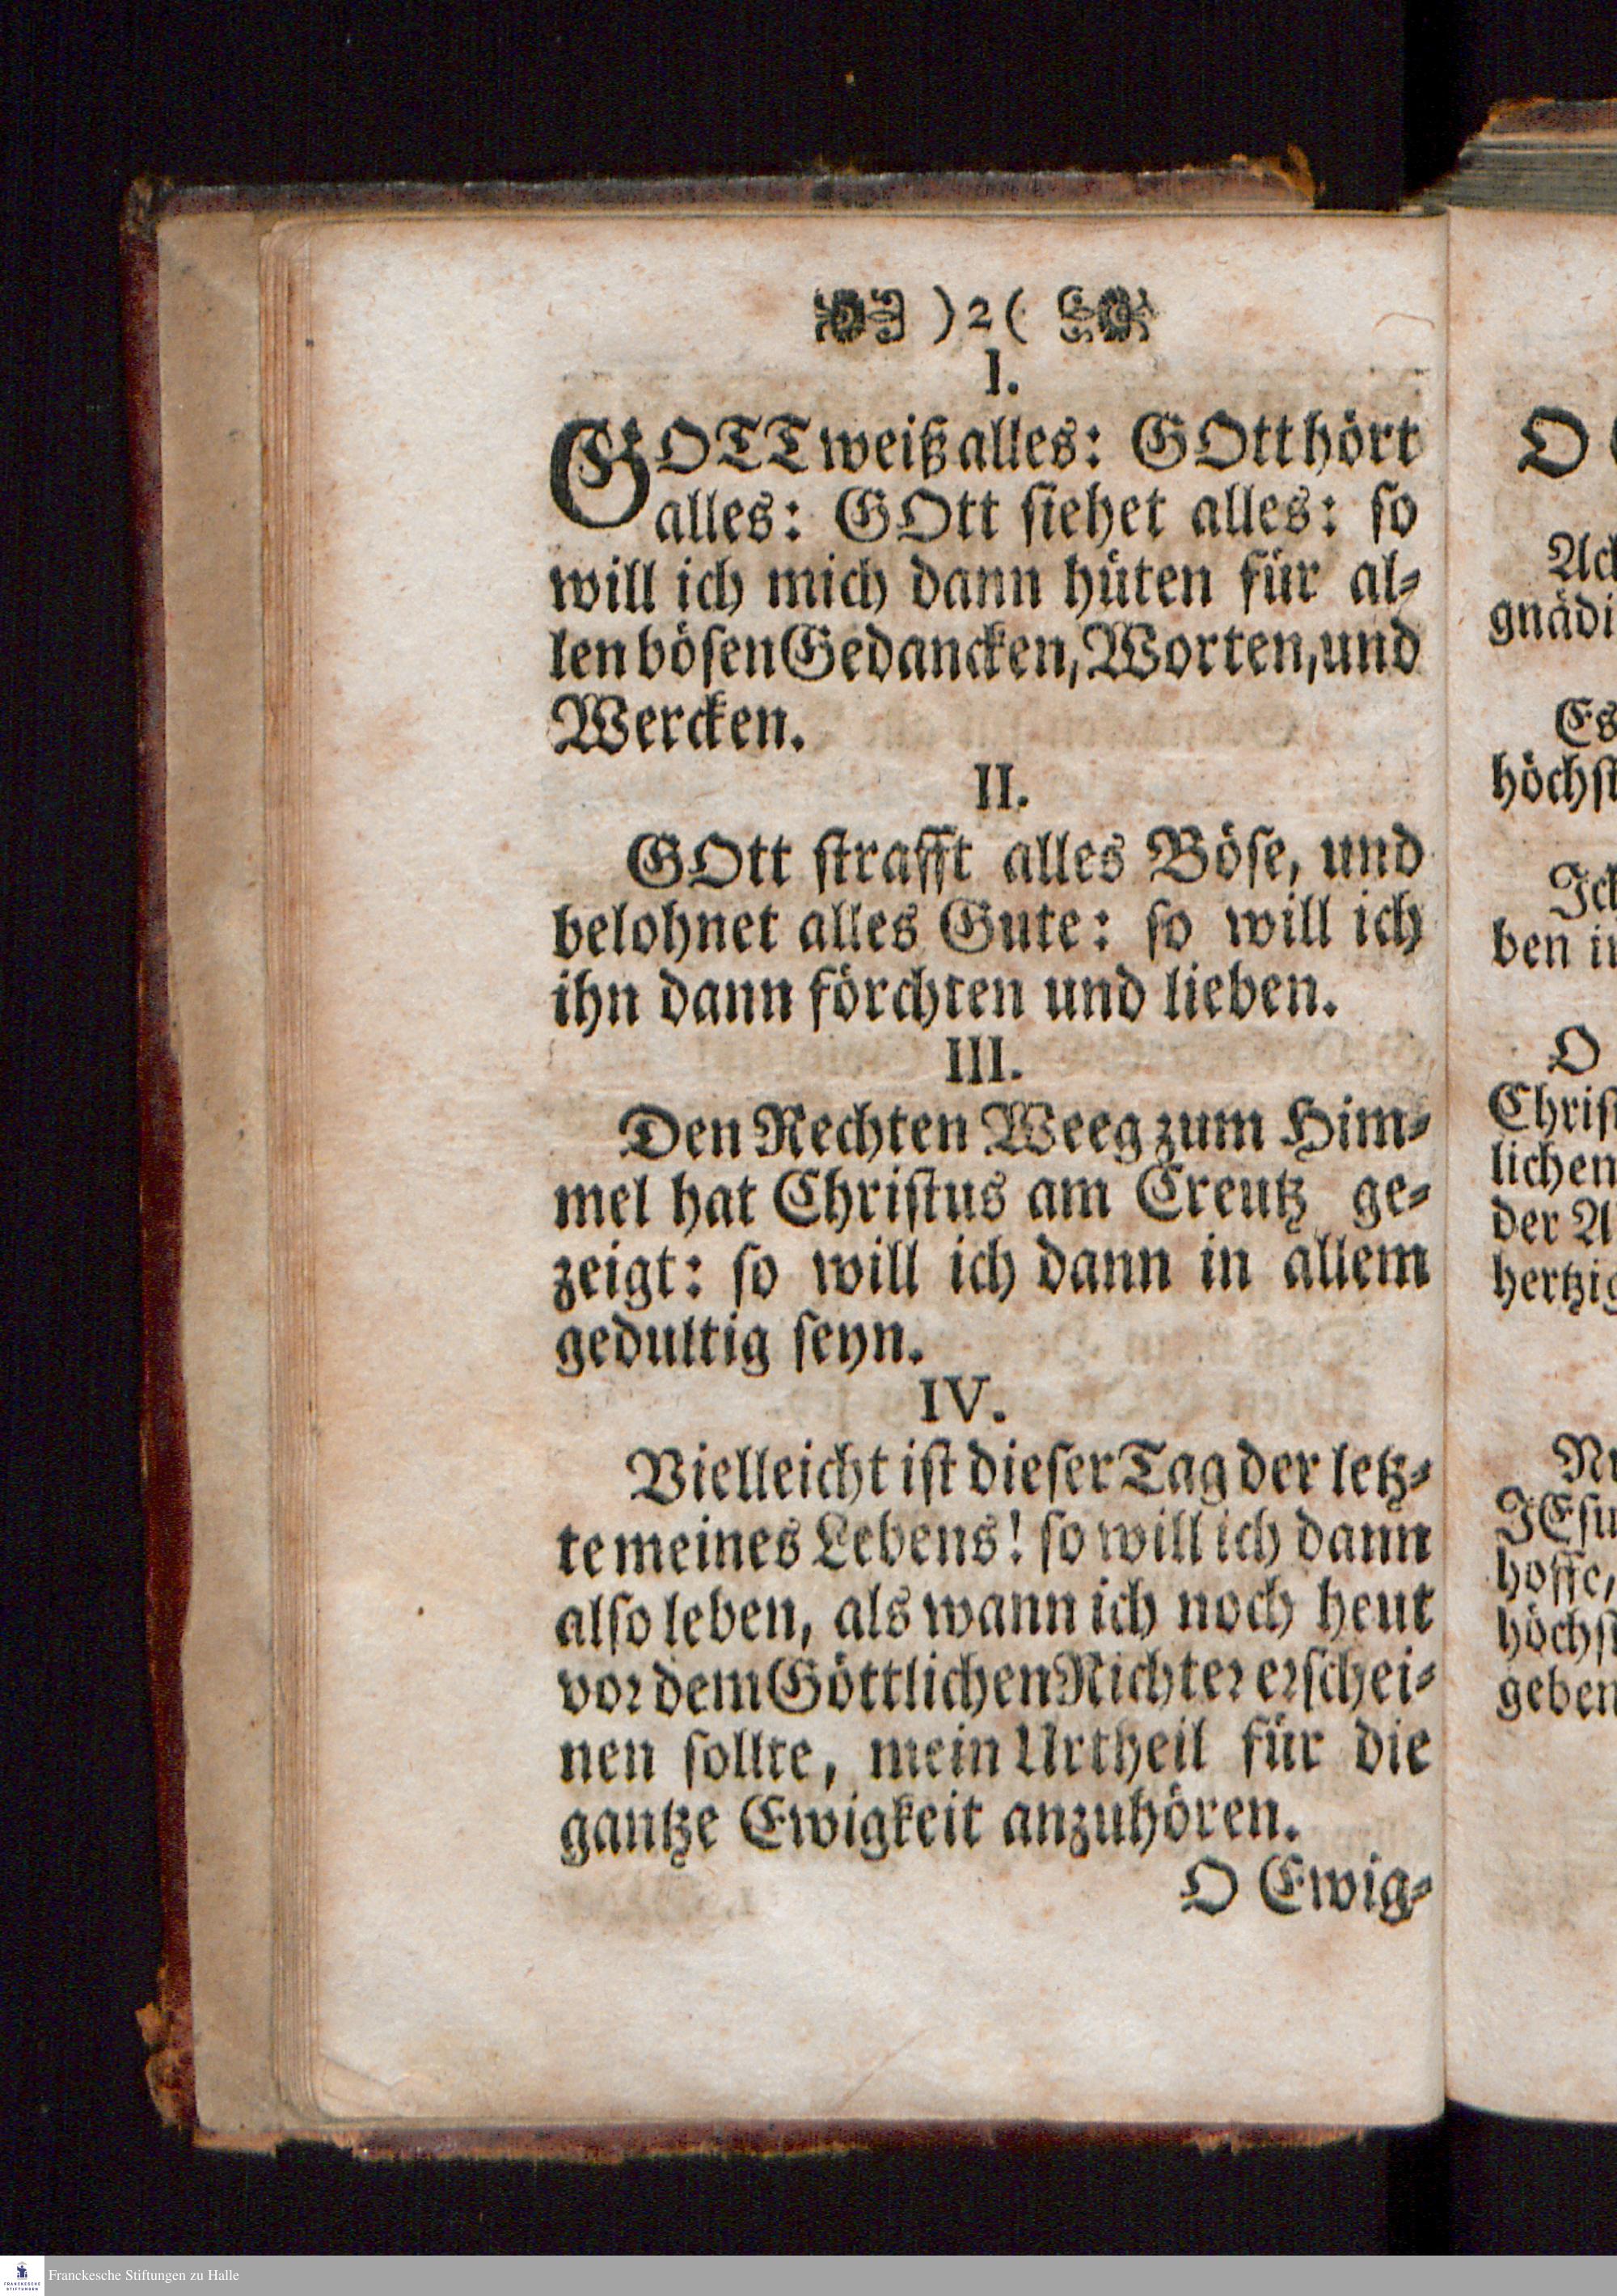 )2(
I.
GOTT weiß alles: GOtt hört
alles: GOtt siehet alles: so
will ich mich dann hüten für al-
len bösen Gedancken, Worten, und
Wercken.
II.
GOtt strafft alles Böse, und
belohnet alles Gute: so will ich
ihn dann förchten und lieben.
III.
Den Rechten Weeg zum Him-
mel hat Christus am Creutz ge-
zeigt: so will ich dann in allem
gedultig seyn.
IV.
Vielleicht ist dieser Tag der letz-
te meines Lebens! so will ich dann
also leben, als wann ich noch heut
vor dem Göttlichen Richter erschei-
nen sollte, mein Urtheil für die
gantze Ewigkeit anzuhören.
O Ewig-
O
gnädi
Es
höchst
ben in
O
Christ
lichen
der A
hertzig
JEsu
hoffe,
höchst
geben
Franckesche Stiftungen zu Halle
FRANCKESCHE
STIFTUNGEN